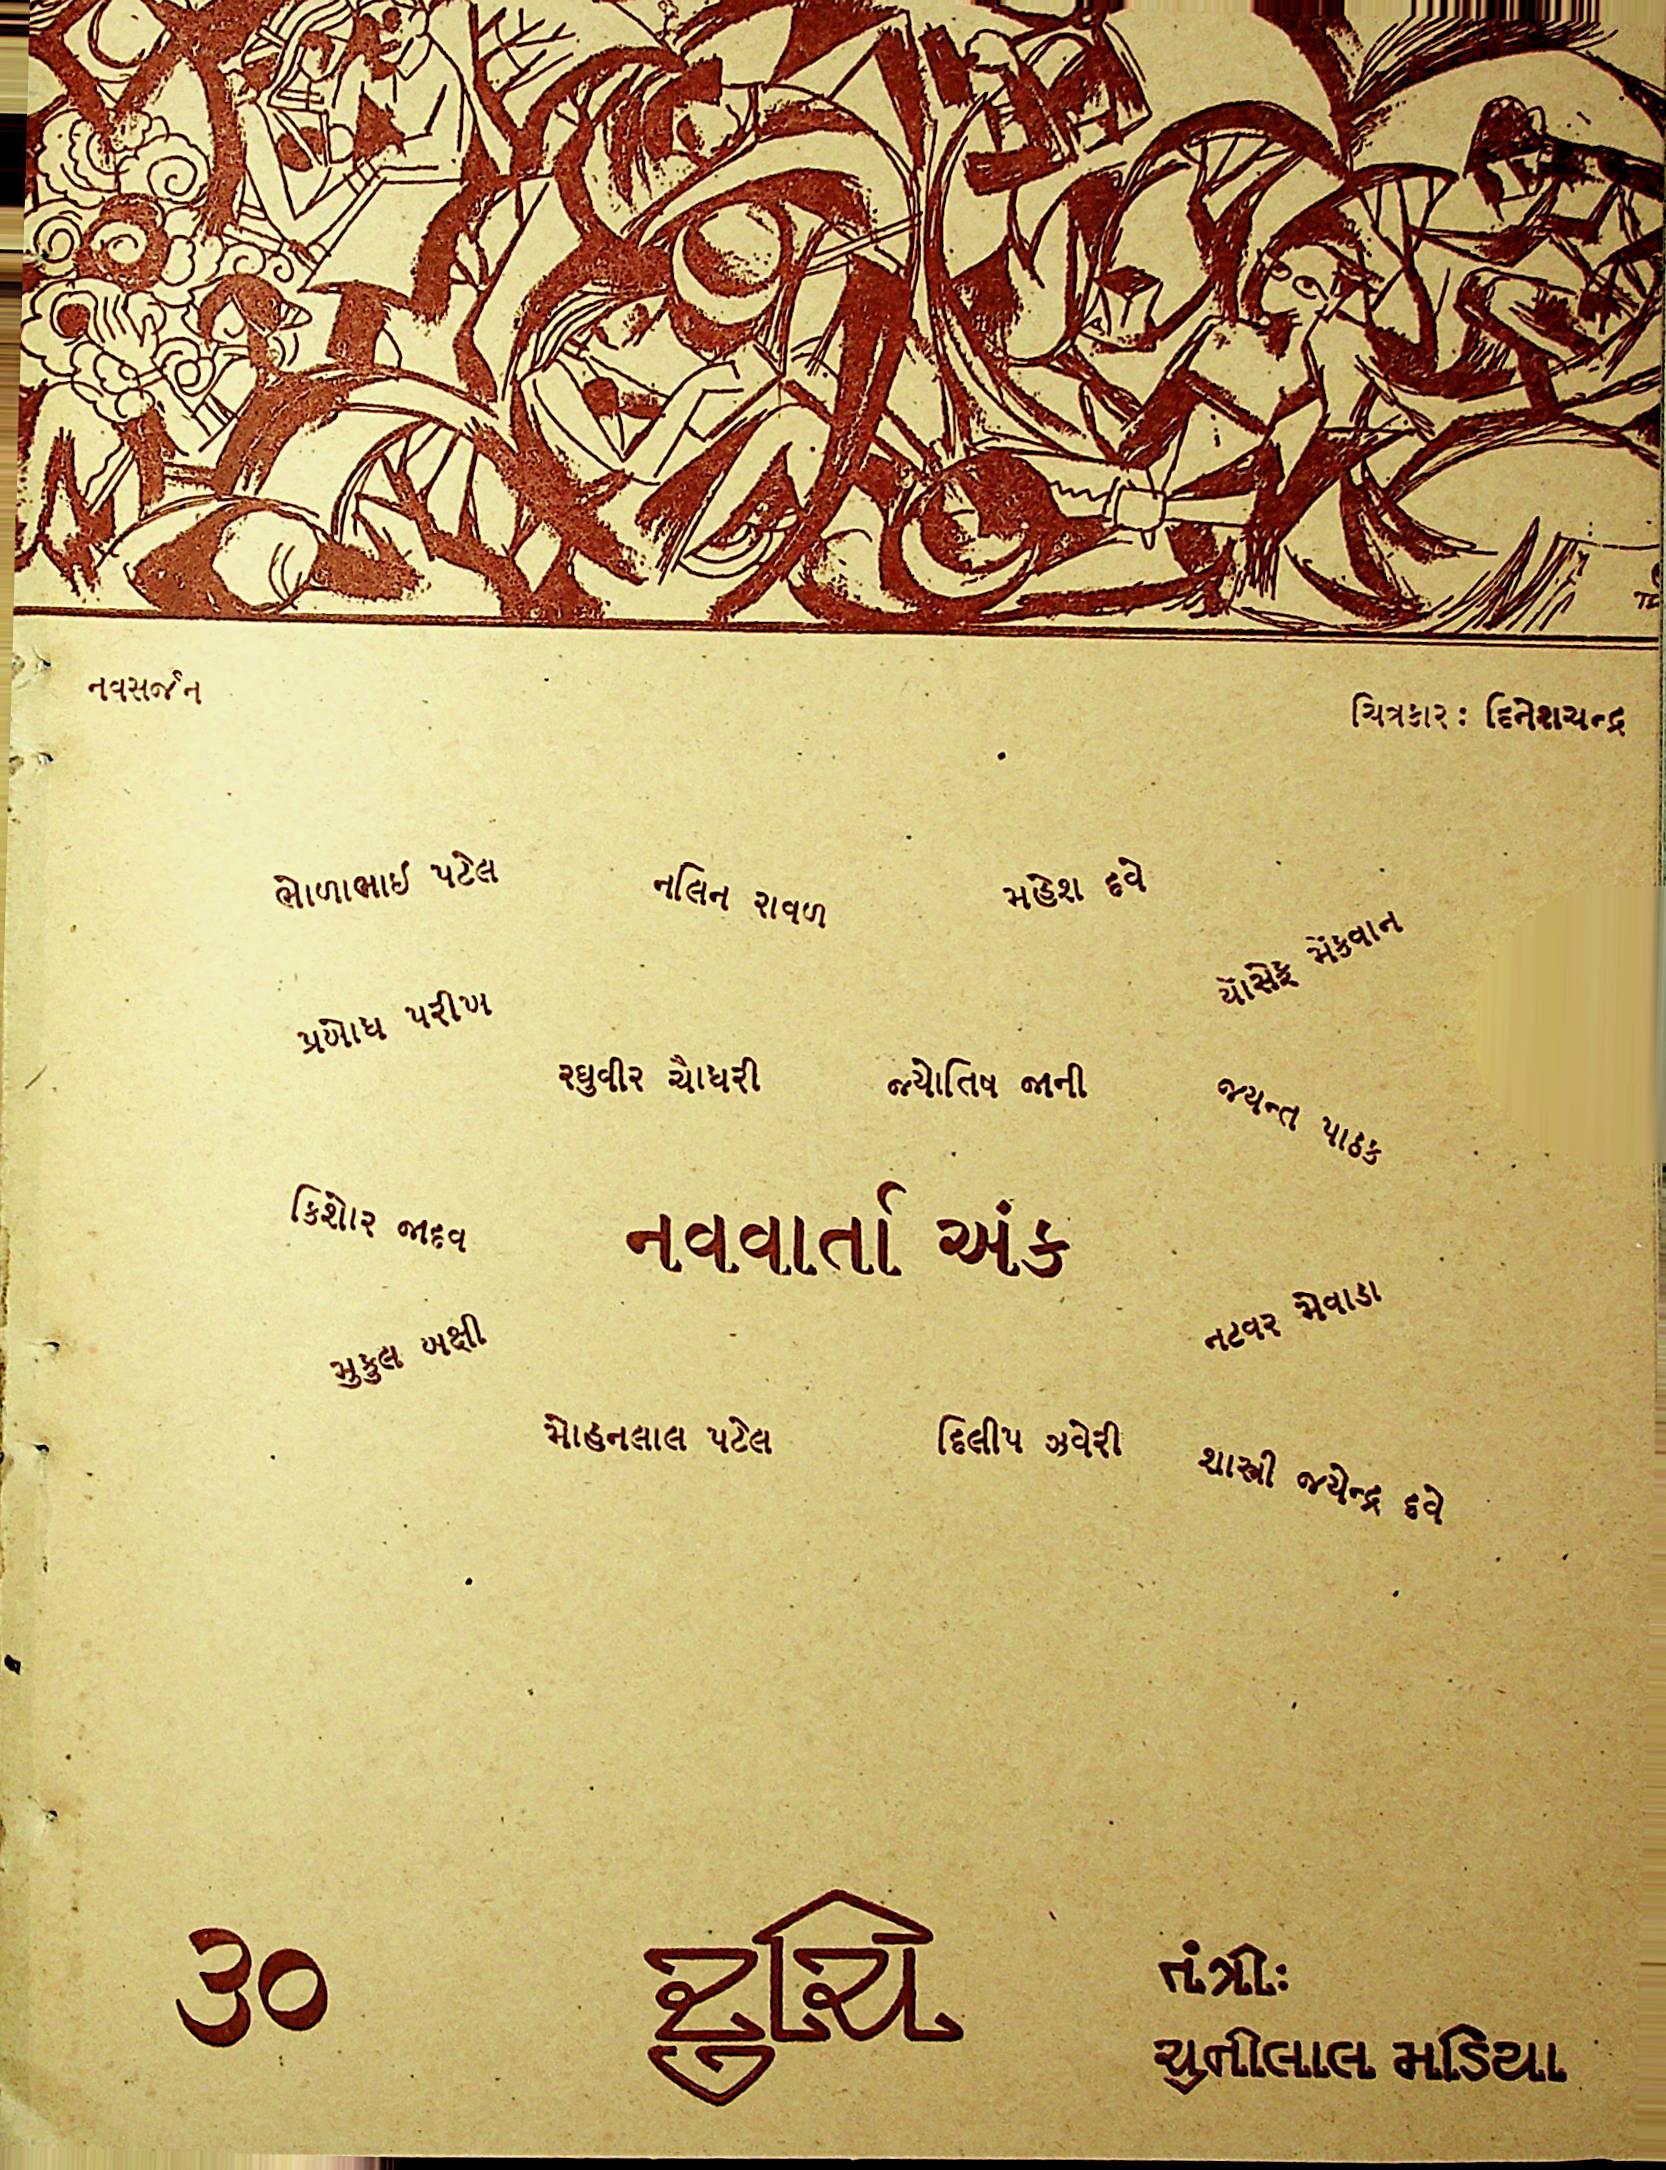 નવસર્જન
ચિત્રકાર : દિનેશચન્દ્ર
ભોળાભાઈ પટેલ
નલિન રાવળ
મહેશ દવે
યૉસેફ મૅકવાન
પ્રબોધ પરીખ
રઘુવીર ચૌધરી
જ્યોતિષ જાની
જયન્ત પાઠક
કિશોર જાદવ
નવવાર્તા અંક
નટવર મેવાડા
મુકુલ બક્ષી
મોહનલાલ પટેલ
દિલીપ ઝવેરી
શાસ્ત્રી જયેન્દ્ર દવે
૩૦
રુચિ
તંત્રી:
ચુનીલાલ મડિયા